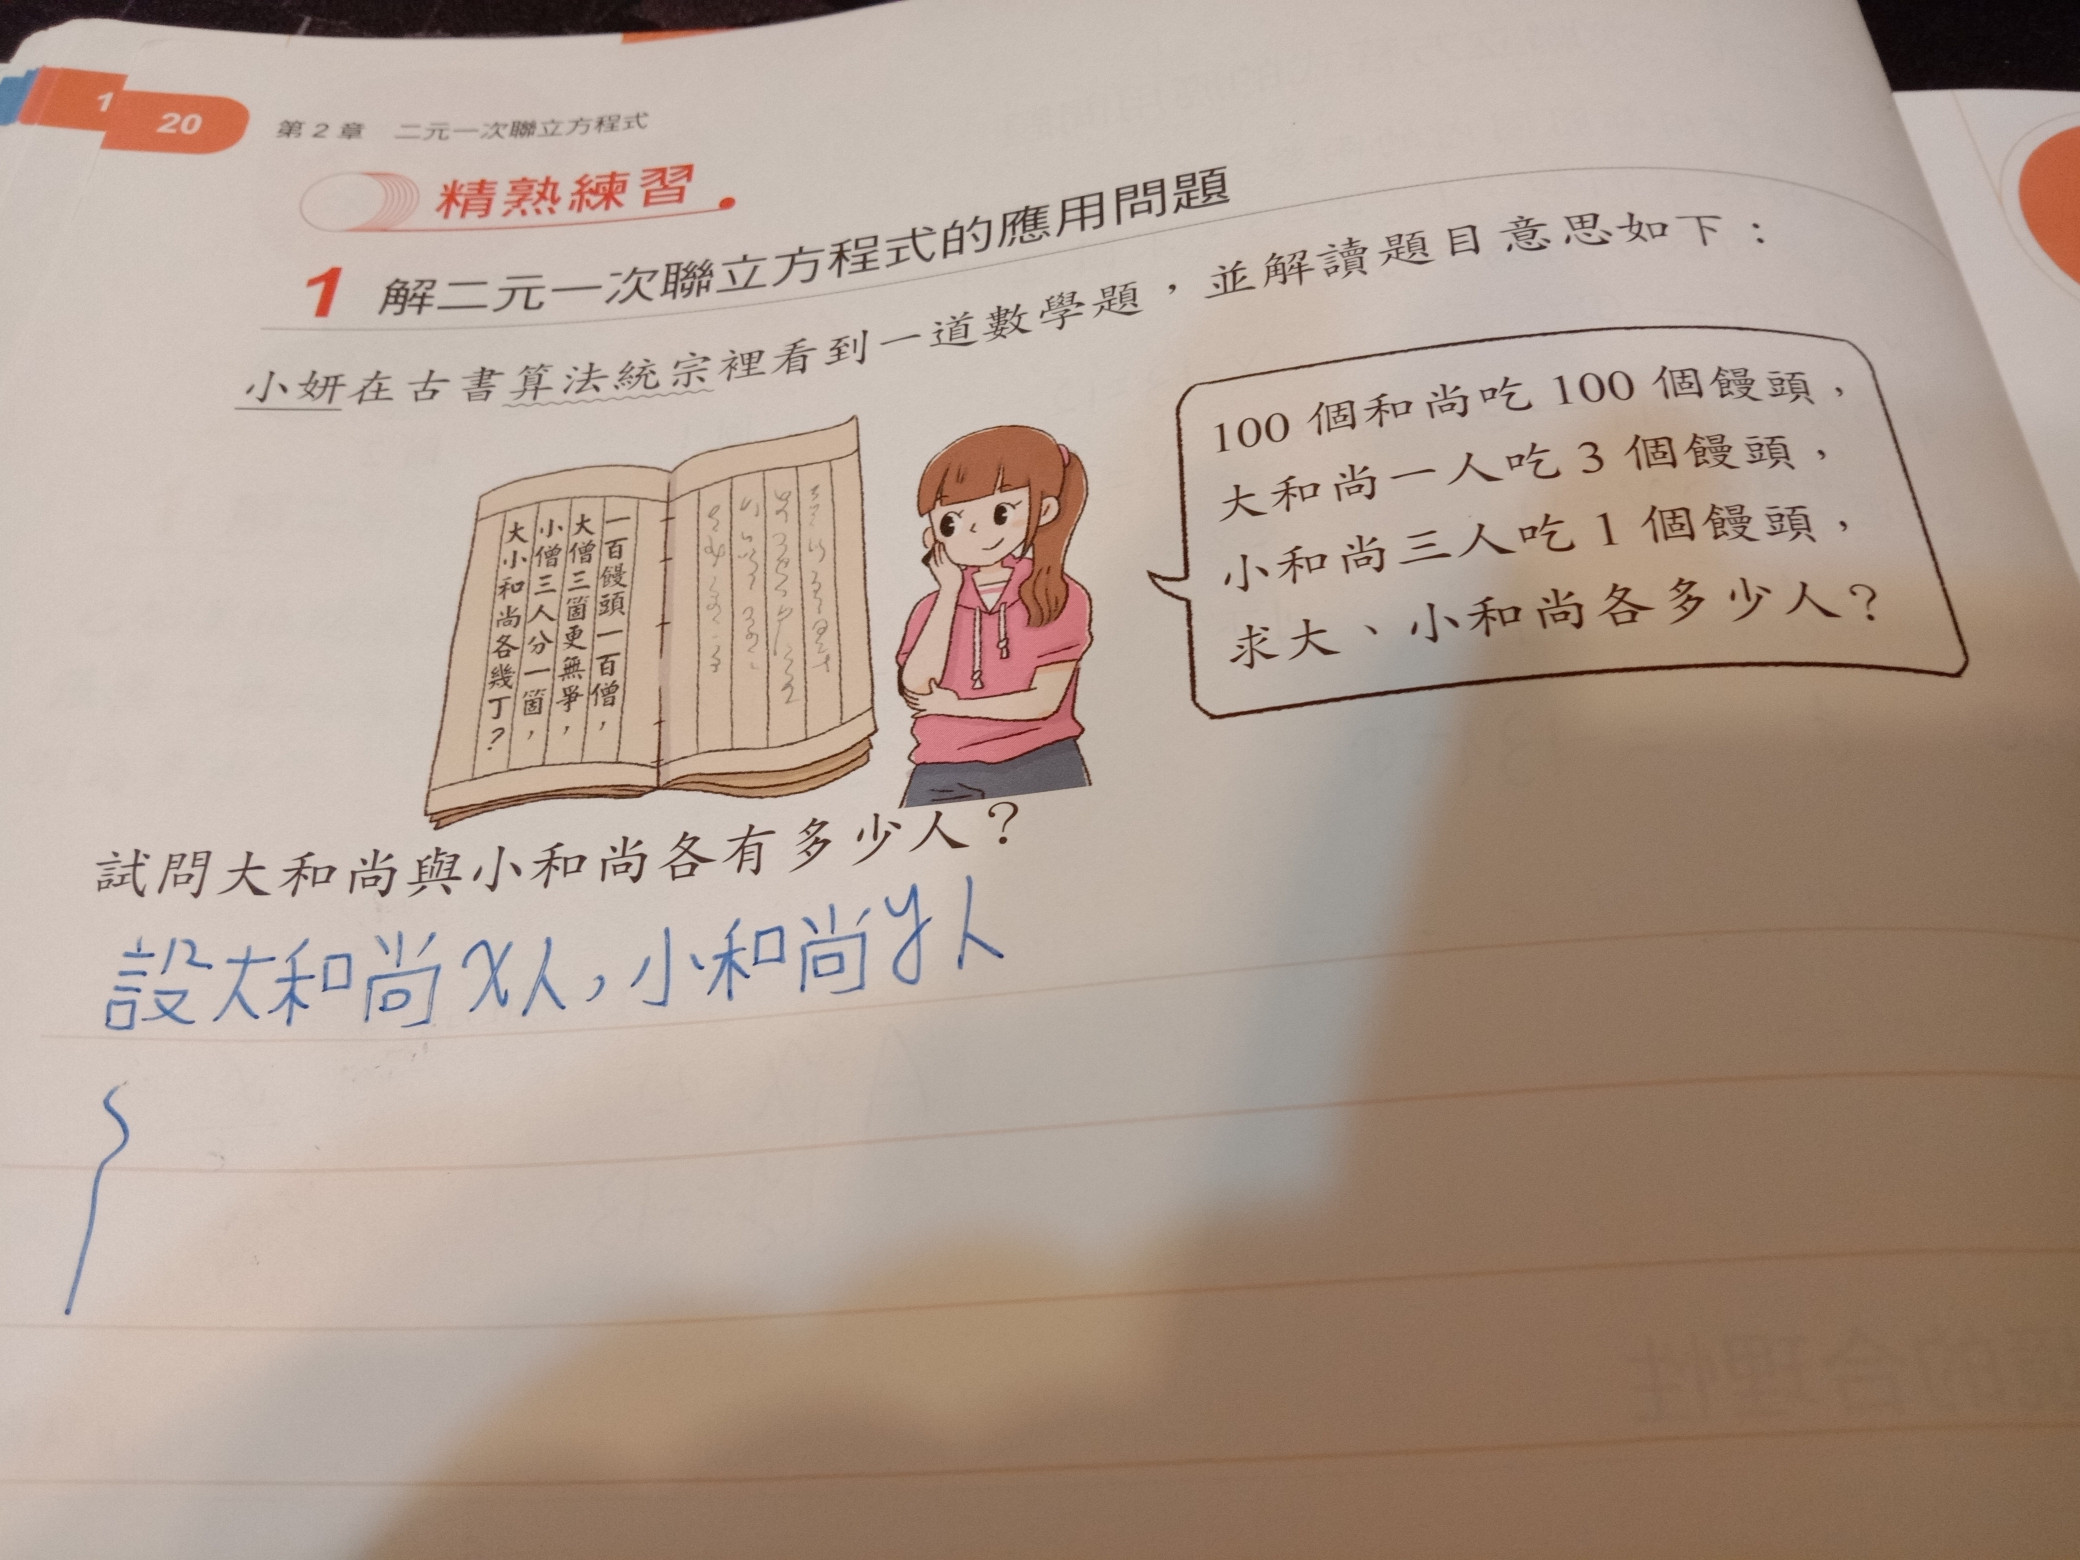 1
20
第2章 二元一次聯立方程式
精熟練習
1 解二元一次聯立方程式的應用問題
小妍在古書算法統宗裡看到一道數學題，並解讀題目意思如下：
一百饅頭一百僧，
大僧三箇更無爭，
小僧三人分一箇，
大小和尚各幾丁？
100個和尚吃100個饅頭，
大和尚一人吃3個饅頭，
小和尚三人吃1個饅頭，
求大、小和尚各多少人？
試問大和尚與小和尚各有多少人？
設大和尚x人，小和尚y人